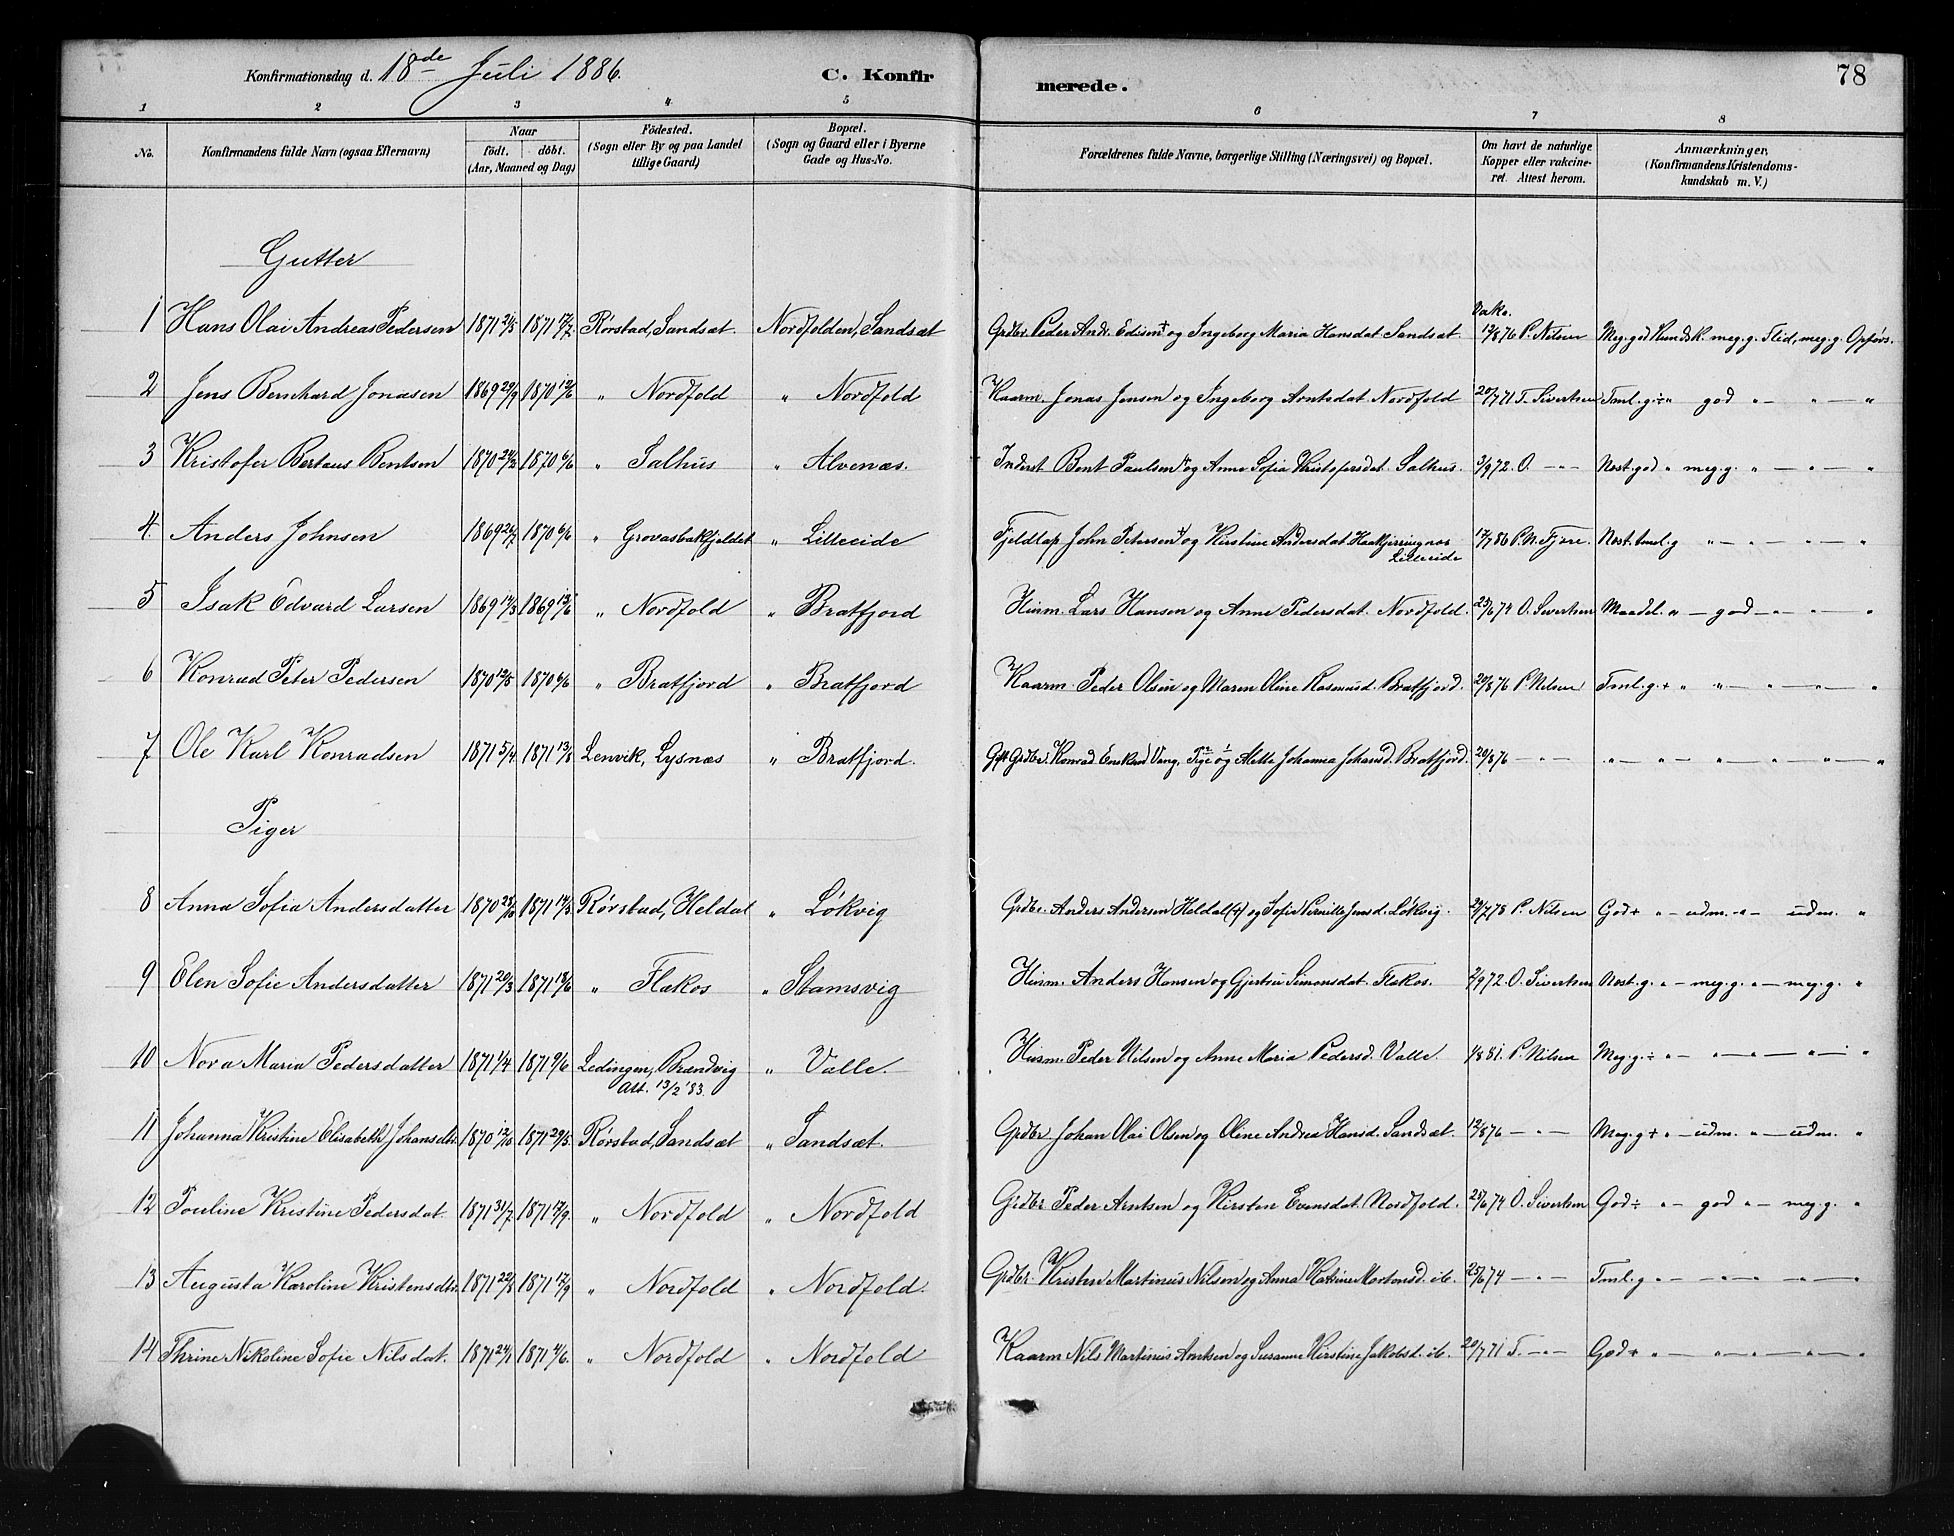 Konfirmationsdag d. 18de Juli 1886. C. Konfirmerede. 78
1 2 3 4 5 6 7 8
No. Konfirmandens fulde Navn (ogsaa Efternavn) Naar født. døbt. (Aar, Maaned og Dag) Fødested. (Sogn eller By og paa Landet tillige Gaard) Bopæl. (Sogn og Gaard eller i Byerne Gade og Hus-No. Forældrenes fulde Navne, borgerlige Stilling (Næringsvei) og Bopæl. Om havt de naturlige Kopper eller vakcineret. Attest herom. Anmærkninger, (Konfirmandens Kristendomskundskab m. V.)
Gutter
1 Hans Olai Andreas Pedersen 1871 21/5 1871 12/7 Rørstad, Sandsæt. Nordfolden, Sandsæt Grdbr. Peder Andr. Edisen + og Ingeborg Maria Hansdat. Sandsæt. Vakc. 12/8 76 P. Nilsen Meg. god Kundsk. meg. g. Flid, meg. g. Opførs.
2 Jens Bernhard Jonasen 1869 29/9 1870 12/6 " Nordfold " Nordfold Kaarm. Jonas Jensen og Ingeborg Arntsdat Nordfold 20/7 71 T. Sivertsen Tml. g. ÷ " god " — " — "
3 Kristofer Bertaus Bentsen 1870 24/2 1870 6/6 " Salhus " Alvenæs. Inderst Bent Paulsen og Anne Sofia Kristofersdat. Salhus. 3/9 72. O. — " — Nost. god " meg. g. " — " — "
4. Anders Johnsen 1869 26/7 1870 6/6 " Grovasbakfjeldet " Lilleeide Fjeldlap John Petersen + og Kirstine Andersdat Haakjerringnes Lilleeide 17/7 86 P. N. Fjære. Nost. tml. g " — " — " — "
5 Isak Edvard Larsen 1869 14/3 1869 13/6 " Nordfold " Bratfjord Husm. Lars Hansen og Anne Pedersdat. Nordfold. 23/6 74 O. Sivertsen Maadel. " — god — " — " — "
6 Konrad Peter Pedersen 1870 12/5 1870 6/6 " Bratfjord " Bratfjord Kaarm. Peder Olsen og Maren Oline Rasmusd. Bratfjord. 20/8 76 P. Nilsen Tml. g. + " " — " — " — "
7 Ole Karl Konradsen 1871 5/4 1871 13/8 Lenvik, Lysnæs " Bratfjord. Gift Grdbr. Konrad Vang, Pige og Mette Johanna Johansd. Bratfjord. 20/8 76 — " — " — " — " — " — " — "
Piger
8 Anna Sofia Andersdatter 1870 28/10 1871 17/3 Rørstad, Heldal " Løkvig Grdbr. Anders Andersen Heldal (+) og Sofie Pernille Jensd. Løkvig. 29/7 78 P. Nilsen God + " — udm. — " — udm. "
9 Elen Sofie Andersdatter 1871 20/3 1871 18/6 " Flekos " Stamsvig Husm. Anders Hansen og Gjertru Simonsdat. Flekos. 2/9 72. O. Sivertsen Nost. g. " — meg. g. " — meg. g. "
10 Nora Maria Pedersdatter 1871 1/4 1871 9/6 Lødingen, Brændvig Att. 13/2 83. " Valle. Husm. Peder Nilsen og Anne Maria Pedersd. Valle 1/8 81. P. Nilsen Meg. g. ÷ " — " — " — " — "
11 Johanna Kristine Elisabeth Johansdtr 1870 12/10 1871 29/5 Rørstad, Sandsæt " Sandsæt. Grdbr Johan Olai Olsen og Oline Andrea Hansd. Sandsæt. 12/8 76 — " — Meg. g + " — udm. " — udm. "
12 Pouline Kristine Pedersdat. 1871 31/7 1871 17/9. " Nordfold " Nordfold Grdbr Peder Arntsen og Kirsten Evensdat. Nordfold. 25/6 74 O. Sivertsen God ÷ " — god " — meg. g. "
13 Augusta Karoline Kristensdtr. 1871 22/8 1871 17/9 " Nordfold " Nordfold. Grdbr. Kristen Martinus Nilsen og Anna Katrine Mortensd. ib. 25/6 74 — " — Tml. g " — " — " — " — "
14 Thrine Nikoline Sofie Nilsdat. 1871 24/1 1871 4/6. " Nordfold " Nordfold Kaarm Nils Martinus Arntsen og Susanne Kirstine Jakobsd. ib. 20/7 71 T. — " — God + " — " — " — " — "